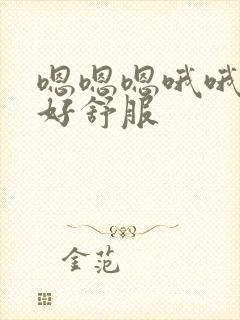 嗯嗯嗯哦哦
好舒服
金范